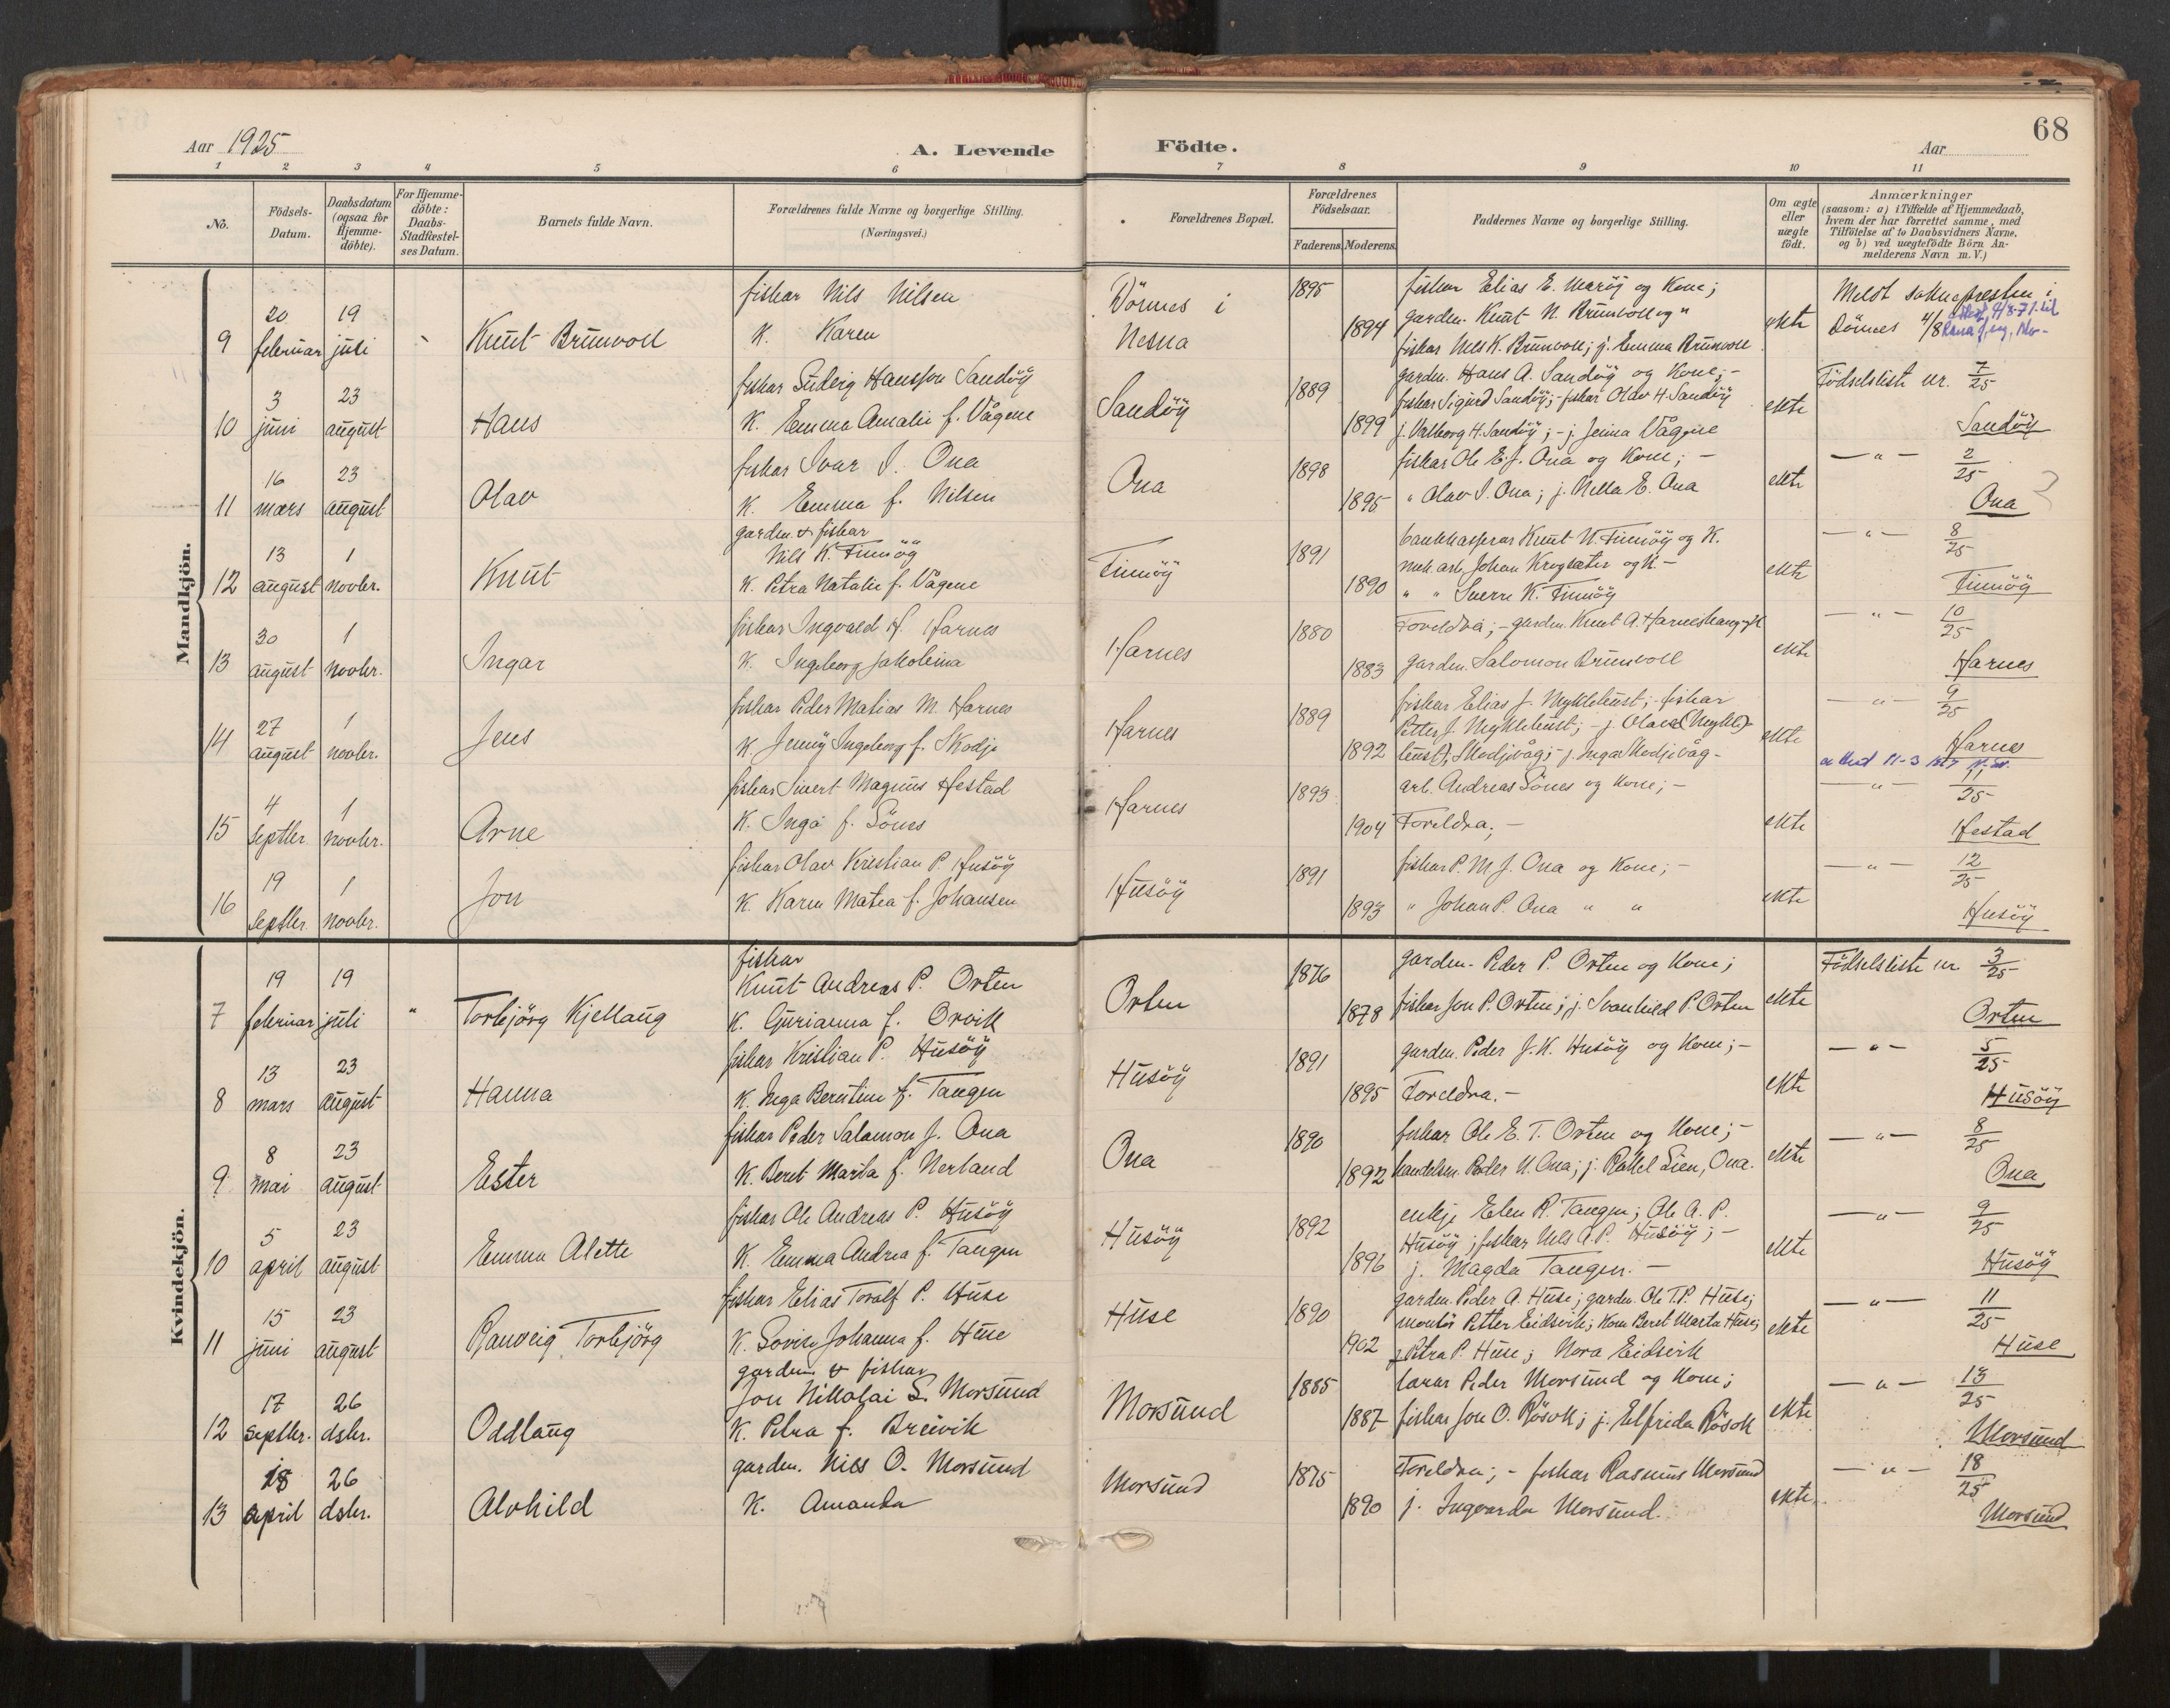 68
Aar 1925
A. Levende Födte.
Aar
1 2 3 4 5 6 7 8 9 10 11
No.
Födsels-Datum.
Daabsdatum (ogsaa for Hjemme-döbte).
For Hjemme-döbte: Daabs-Stadfæstel-ses Datum.
Barnets fulde Navn.
Forældrenes fulde Navne og borgerlige Stilling. (Næringsvei.)
Forældrenes Bopæl.
Forældrenes Födselsaar.
Faderens. Moderens.
Faddernes Navne og borgerlige Stilling.
Om ægte eller uægte födt.
Anmærkninger (saasom: a) i Tilfælde af Hjemmedaab, hvem der har forrettet samme, med Tilföielse af to Daabsvidners Navne, og b) ved uægtefödte Börn An-melderens Navn m. V.)
Mandkjön.
9 20 februar 19 juli Knut Brunvoll
fiskar Nils Nilsen
K. Karen
Dönnes i Nesna
1895 1894
fiskar Elias E. Maröy og Kone;
garden. Knut N. Brunvoll og "
fiskar Nils K. Brunvoll; j. Emma Brunvoll
ekte
Meldt soknepresten i
Dönnes 4/8
10 3 juni 23 august Hans
fiskar Sverig Hansson Sandöy
K. Emma Amalie f. Vågene
Sandöy
1889 1899
garden. Hans A. Sandöy og Kone; -
fiskar Sigurd Sandöy; - fiskar Olav H. Sandöy
j. Valborg H. Sandöy; - j. Jenina Vågene
ekte
Födselsliste nr. 7/25
Sandöy
11 16 mars 23 august Olav
fiskar Ivar I. Ona
K. Emma f. Nilsen
Ona
1898 1895
fiskar Ole E. J. Ona og Kone; -
" Olav I. Ona; j. Nella E. Ona
ekte
— " — 2/25
Ona
12 13 august 1 novbr. Knut
garden. & fiskar
Nils K. Finnöy
K. Petra Natalie f. Vågene
Finnöy
1891 1890
bankkasserar Knut N. Finnöy og K.
mek. arb. Johan Krogsæter og K. -
" " Sverre K. Finnöy
ekte
— " — 8/25
Finnöy
13 30 august 1 novbr. Ingar
fiskar Ingvald H. Harnes
K. Ingeborg Jakobina
Harnes
1880 1883
Foreldra; - garden. Knut A. Harneshaug
garden. Salomon Brunvoll
ekte
— " — 10/25
Harnes
14 27 august 1 novbr. Jens
fiskar Peder Matias M. Harnes
K. Jenny Ingeborg f. Skodje
Harnes
1889 1892
fiskar Elias J. Myklebust; fiskar
Petter J. Myklebust; - j. Olava (Mykle-
bust), Skodjevåg; - j. Inga Skodjevåg -
ekte
— " — 9/25
Harnes
15 4 septbr. 1 novbr. Arne
fiskar Sivert Magnus Hestad
K. Inga f. Sönes
Harnes
1893 1904
arb. Andreas Sönes og Kone; -
Foreldra; -
ekte
— " — 11/25
Hestad
16 19 septbr. 1 novbr. Jon
fiskar Olav Kristian P. Husöy
K. Karen Matea f. Johansen
Husöy
1891 1893
fiskar P. M. J. Ona og Kone; -
" Johan P. Ona " "
ekte
— " — 12/25
Husöy
Kvindekjön.
7 19 februar 19 juli " Torbjörg Kjellaug
fiskar
Knut Andreas P. Orten
K. Gurianna f. Orvik
Orten
1876 1878
garden. Peder P. Orten og Kone;
fiskar Jon P. Orten; j. Svanhild P. Orten
ekte
Födselsliste nr. 3/25
Orten
8 13 mars 23 august Hanna
fiskar Kristian P. Husöy
K. Inga Berntine f. Tangen
Husöy
1891 1895
garden. Peder J. K. Husöy og Kone; -
Foreldra. -
ekte
— " — 5/25
Husöy
9 8 mai 23 august Ester
fiskar Peder Salamon J. Ona
K. Beret Marta f. Nerland
Ona
1890 1892
fiskar Ole E. T. Orten og Kone; -
handelsm. Peder N. Ona; j. Rakel Lien, Ona.
ekte
— " — 8/25
Ona
10 5 april 23 august Emma Alette
fiskar Ole Andreas P. Husöy
K. Emma Andrea f. Tangen
Husöy
1892 1896
enkje Elen R. Tangen; Ole A. P.
Husöy; fiskar Nils A. P. Husöy; -
j. Magda Tangen. -
ekte
— " — 9/25
Husöy
11 15 juni 23 august Ranveig Torbjörg
fiskar Elias Toralf P. Huse
K. Lovise Johanna f. Huse
Huse
1890 1902
garden. Peder A. Huse; garden. Ole T. P. Huse;
montör Petter Eidsvik; Kone Beret Marta Huse;
j. Petra P. Huse; Nora Eidsvik
ekte
— " — 11/25
Huse
12 17 septbr. 26 dsbr. Oddlaug
garden. & fiskar
Jon Nikolai S. Morsund
K. Petra f. Breivik
Morsund
1885 1887
lærar Peder Morsund og Kone;
fiskar Jon O. Rösok; j. Elfrida Rösok
ekte
— " — 13/25
Morsund
13 18 april 26 dsbr. Alvhild
garden. Nils O. Morsund
K. Amanda
Morsund
1875 1890
Foreldra; - fiskar Rasmus Morsund
j. Ingvarda Morsund.
ekte
— " — 18/25
Morsund